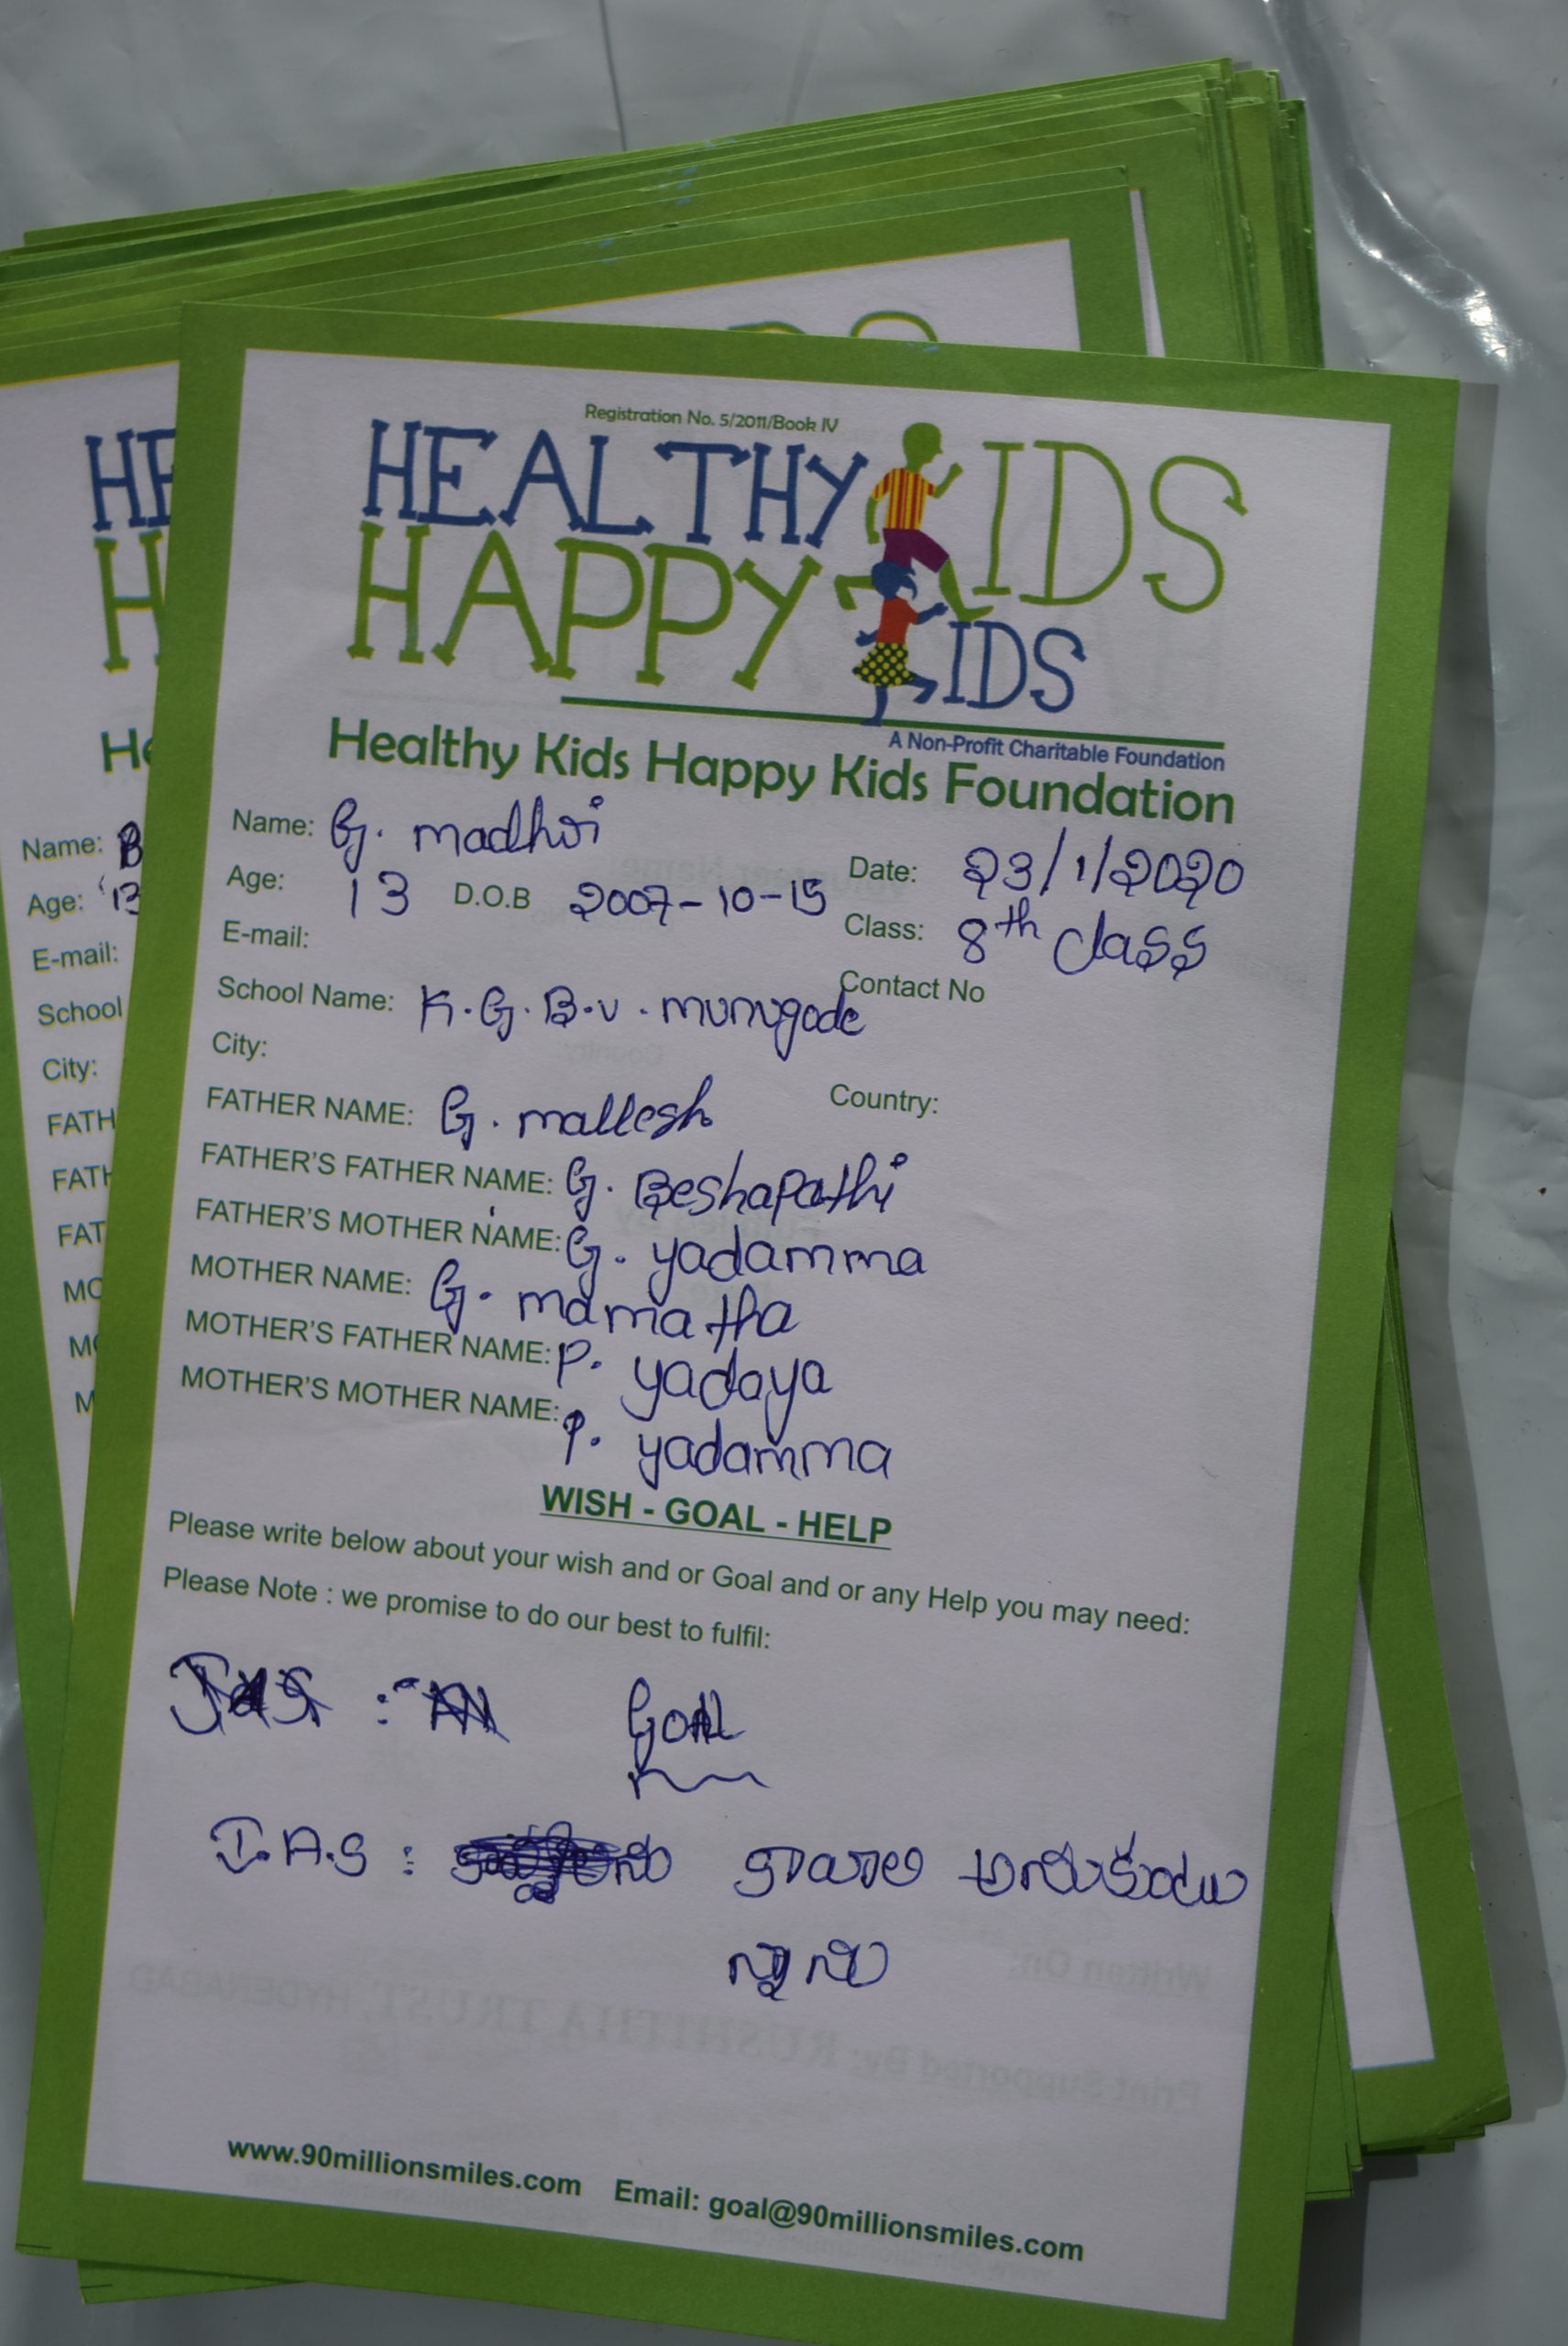 Registration No. 5/2011/Book IV
HEALTHY KIDS
HAPPY KIDS
A Non-Profit Charitable Foundation
Healthy Kids Happy Kids Foundation
Name: G. madhvi
Date: 23/1/2020
Age: 13 D.O.B 2007-10-15
Class: 8th class
E-mail:
Contact No
School Name: K.G.B.v. munugode
City:
Country:
FATHER NAME: G. mallesh
FATHER'S FATHER NAME: G. Beshapathi
FATHER'S MOTHER NAME: G. yadamma
MOTHER NAME: G. mamatha
MOTHER'S FATHER NAME: P. yadaya
MOTHER'S MOTHER NAME: P. yadamma
WISH - GOAL - HELP
Please write below about your wish and or Goal and or any Help you may need:
Please Note : we promise to do our best to fulfil:
Goal
I.A.S : కావాలి అనుకుంటు
న్నాను
www.90millionsmiles.com Email: goal@90millionsmiles.com
HE
H
He
Name: B
Age: 13
E-mail:
School
City:
FATH
FATH
FAT
MO
MO
M